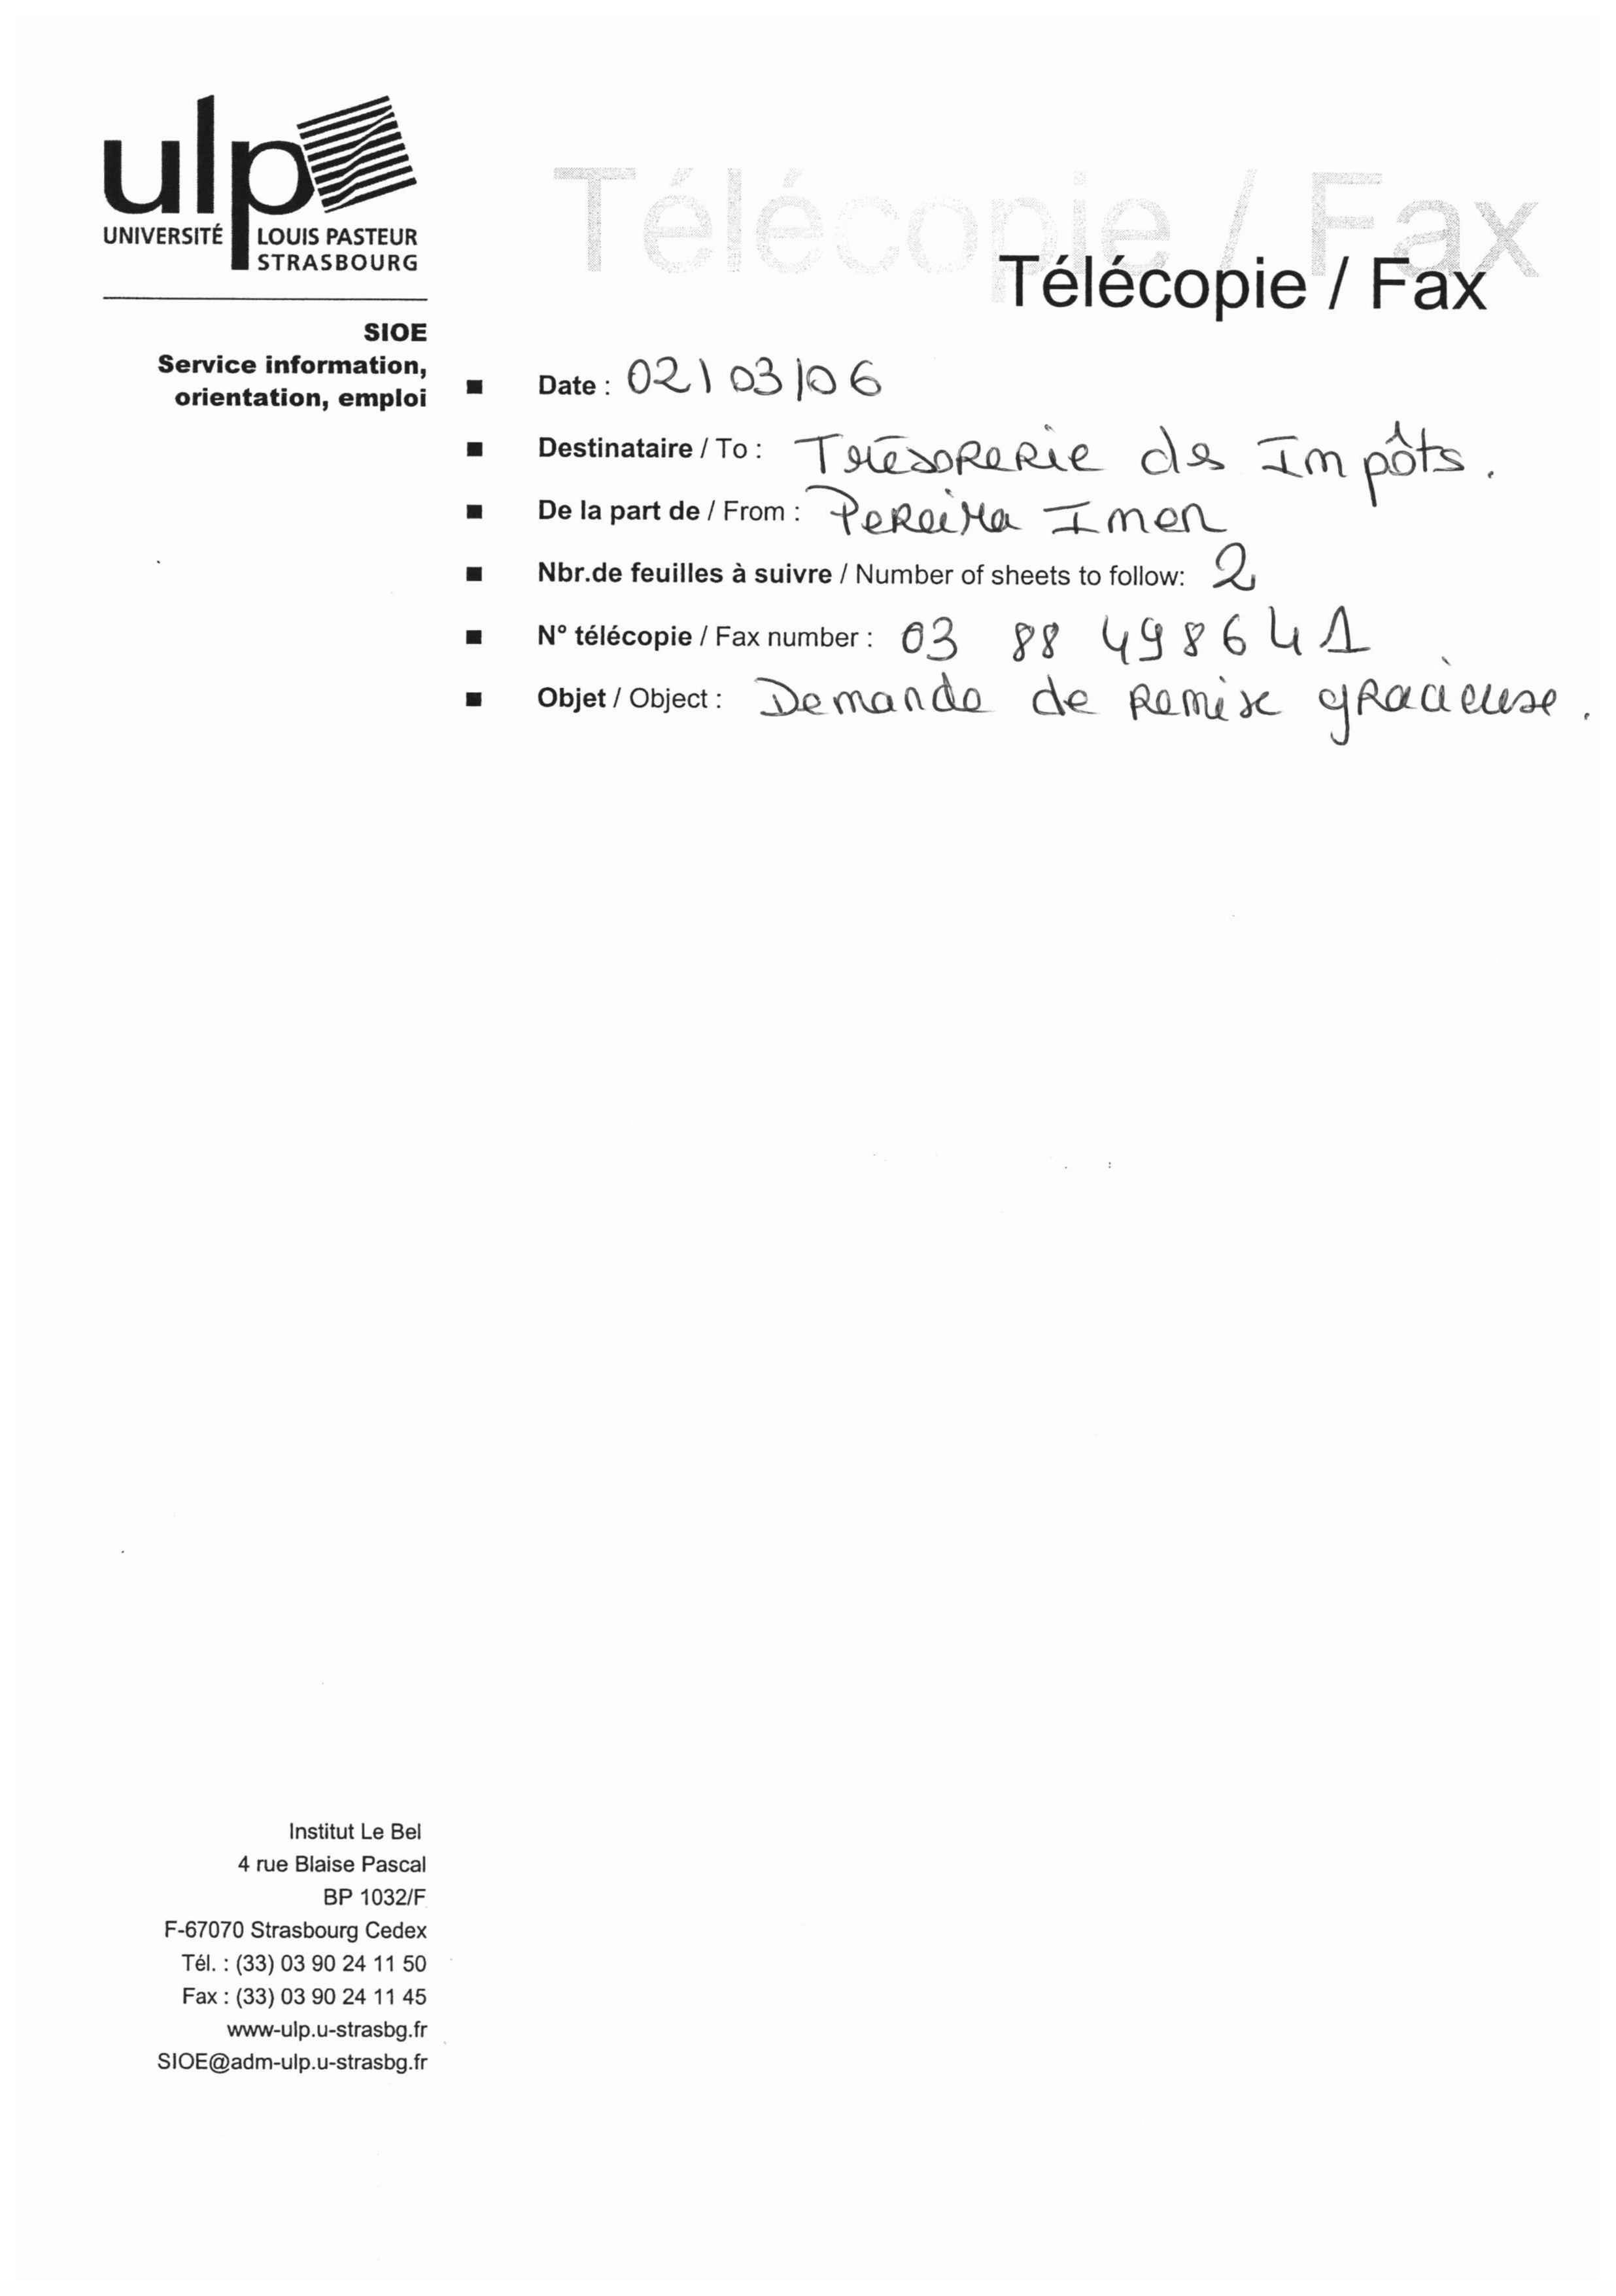 ulp
UNIVERSITÉ LOUIS PASTEUR
STRASBOURG
Télécopie / Fax
Télécopie / Fax
SIOE
Service information,
orientation, emploi
■ Date : 02/03/06
■ Destinataire / To : Trésorerie des Impôts.
■ De la part de / From : Pereira Imen
■ Nbr.de feuilles à suivre / Number of sheets to follow: 2
■ N° télécopie / Fax number : 03 88 498641
■ Objet / Object : Demande de remise gracieuse.
Institut Le Bel
4 rue Blaise Pascal
BP 1032/F
F-67070 Strasbourg Cedex
Tél. : (33) 03 90 24 11 50
Fax : (33) 03 90 24 11 45
www-ulp.u-strasbg.fr
SIOE@adm-ulp.u-strasbg.fr